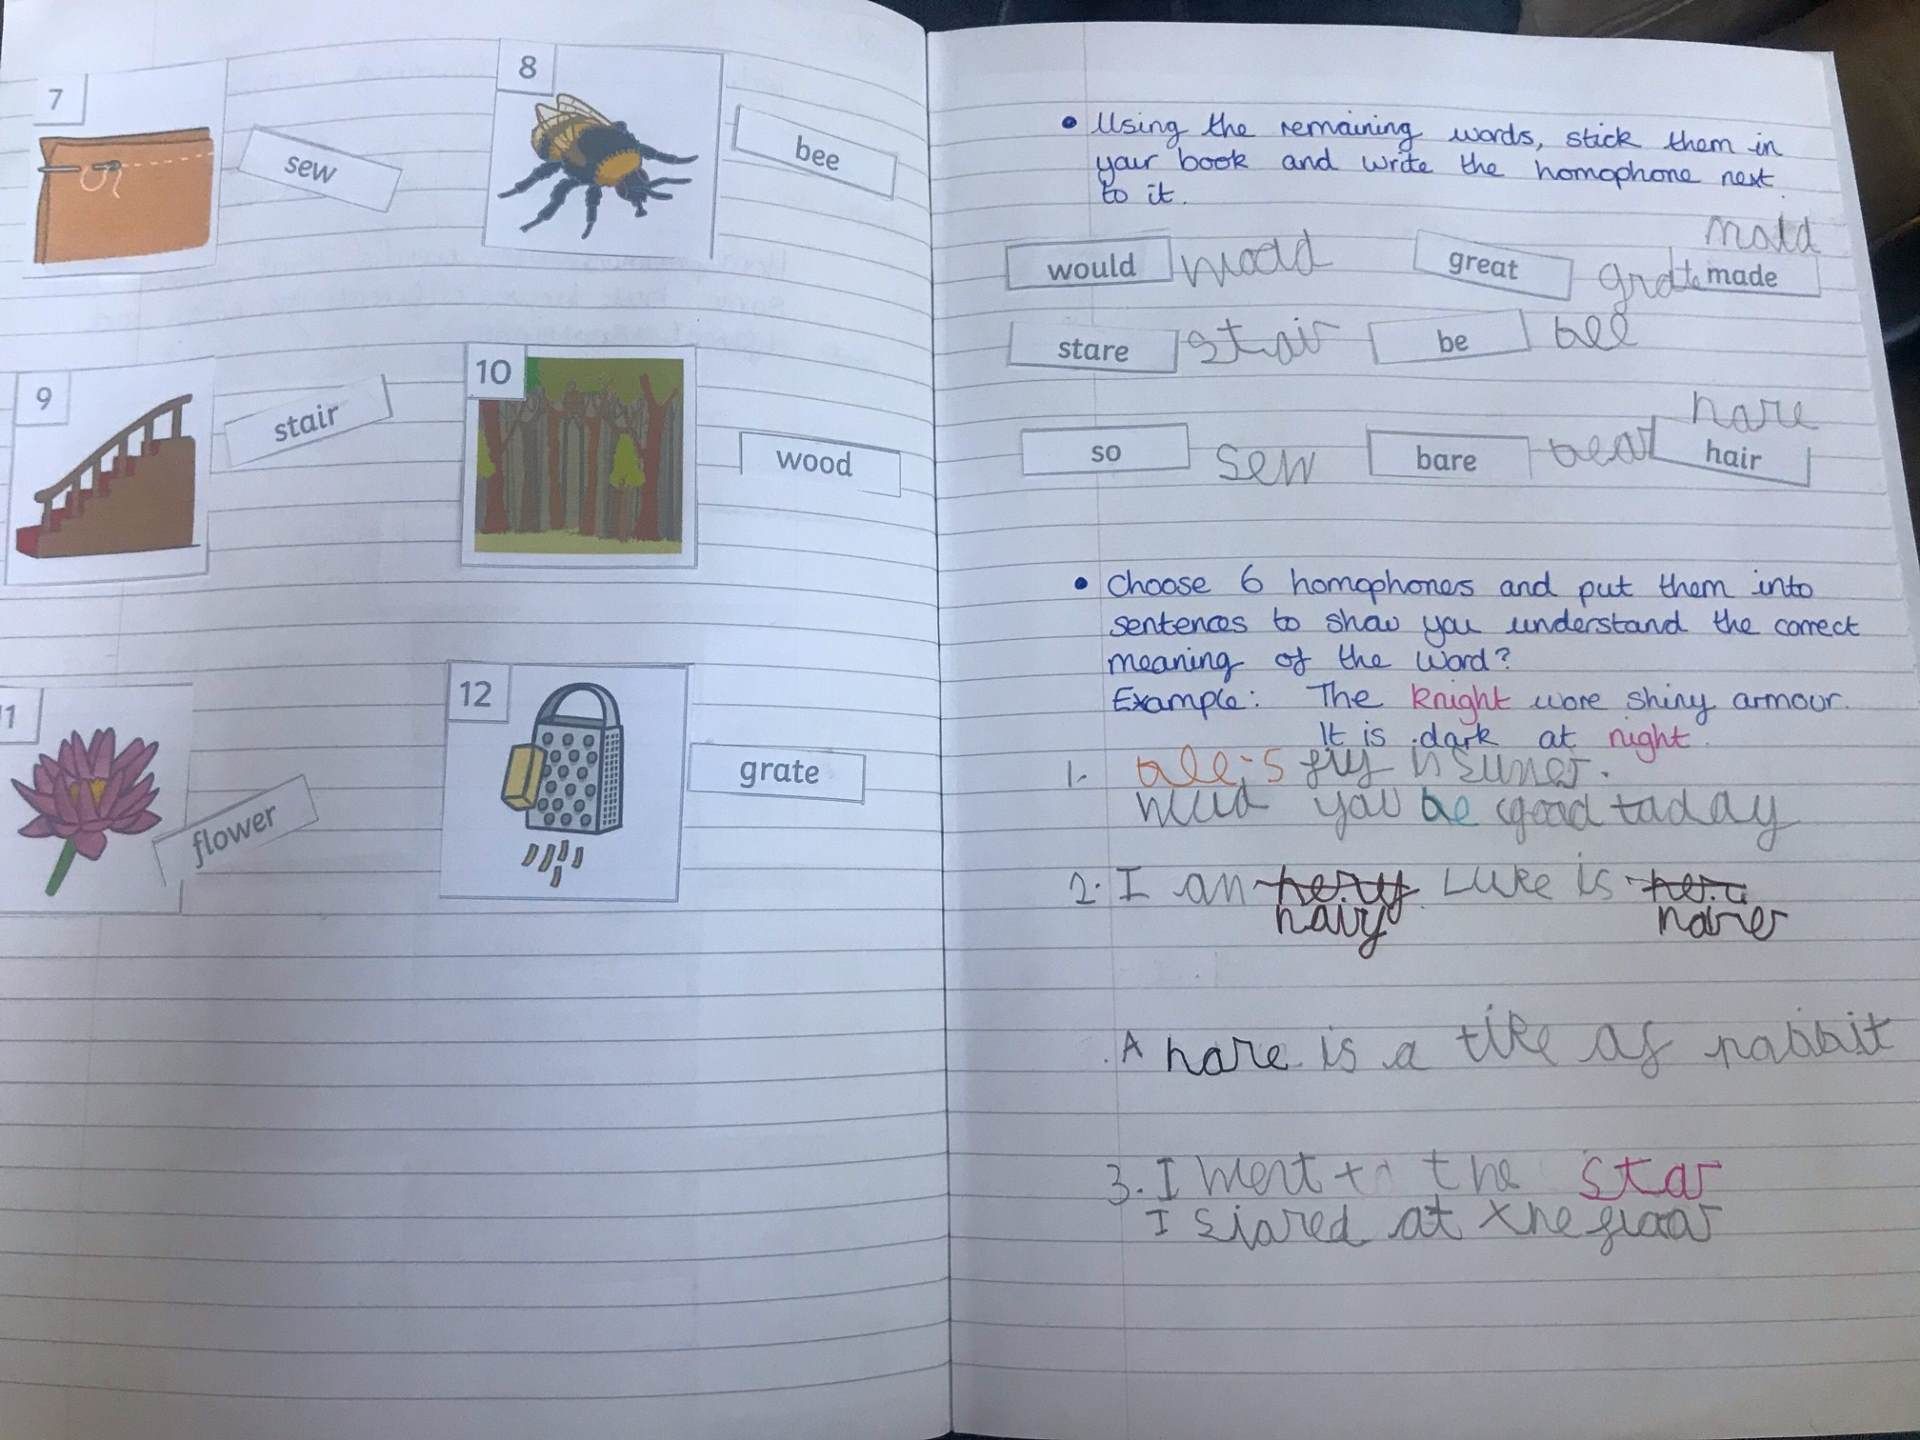 7
sew
8
bee
9
stair
10
wood
1
flower
12
grate
• Using the remaining words, stick them in
your book and write the homophone next
to it.
would wood great grate made maid
stare stair be bee
so sew bare bear hair hare
• Choose 6 homophones and put them into
sentences to show you understand the correct
meaning of the word?
Example: The knight wore shiny armour.
It is dark at night.
1. fly in
you be good taday
2. I an hairy Luke is harer
A hare is a tike of rabbit
3. I went to the star
I stared at the floor